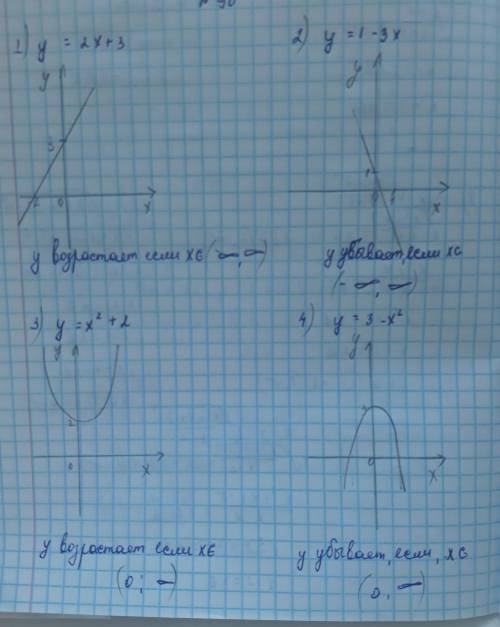 1) y = 2x+3
y
3
-2
0
x
y возрастает если x∈(-∞, ∞)
2) y = 1-3x
y
1
0
1
x
y убывает, если x∈
(-∞; ∞)
3) y = x² + 2
y
2
0
x
y возрастает если x∈
(0; ∞)
4) y = 3-x²
y
0
x
y убывает, если, x∈
(0, ∞)